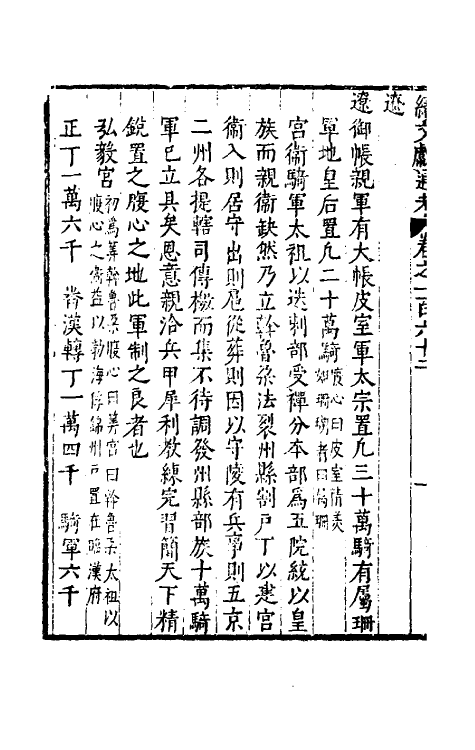 續文獻通考 卷之一百六十二
遼
遼御帳親軍有大帳皮室軍太宗置凡三十萬騎有屬珊
軍地皇后置凡二十萬騎腹心曰皮室情美如珊瑚者曰屬珊
宮衛騎軍太祖以迭剌部受禪分本部爲五院統以皇
族而親衛缺然乃立斡魯朶法裂州縣割戶丁以建宮
衛入則居守出則扈從葬則因以守陵有兵事則五京
二州各提轄司傳檄而集不待調發州縣部族十萬騎
軍已立具矣恩意親洽兵甲犀利教練完習簡天下精
銳置之腹心之地此軍制之良者也
弘毅宮初爲筭斡魯朶腹心曰筭宮曰斡魯朶太祖以腹心之衛益以勃海俘錦州戶置在臨潢府
正丁一萬六千 蕃漢轉丁一萬四千 騎軍六千